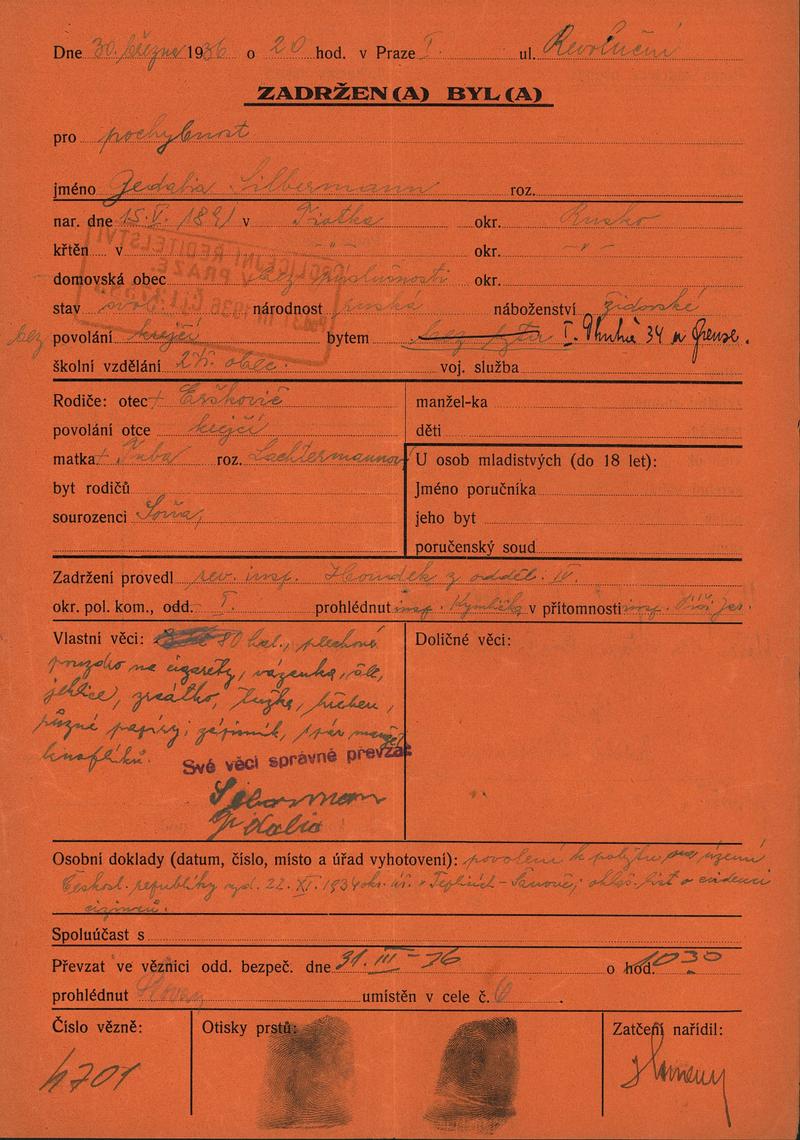 Dne 30. března 1936 o 20 hod. v Praze I. ul. Revoluční
ZADRŽEN(A) BYL(A)
pro pochybnost
jméno Gedalia Silbermann roz.
nar. dne 15. V. 1891 v okr. Rusko
křtěn v - " - okr. - " -
domovská obec bez příslušnosti okr.
stav svob. národnost ruská náboženství židovské
bez povolání krejčí bytem bez bytu I. Dlouhá 34 u
školní vzdělání 2 tř. obec. voj. služba
Rodiče: otec + Erškovič manžel-ka
povolání otce krejčí děti
matka + roz. Lachtermannova U osob mladistvých (do 18 let):
byt rodičů Jméno poručníka
sourozenci Soňa, jeho byt
poručenský soud
Zadržení provedl rev. insp. Houdek z odděl. IV.
okr. pol. kom., odd. I. prohlédnut insp. v přítomnosti insp.
Vlastní věci: 80 hal., plechové Doličné věci:
pouzdro na cigarety, vázanka, šále,
jehlice, zrcátko, tužka, hřeben,
různé papíry, zápisník, pár manž.
knoflíků.
Své věci správně převzal:
Silbermann
Gidalia
Osobní doklady (datum, číslo, místo a úřad vyhotovení): povolení k pobytu na území
Českosl. republiky vyd. 22. XI. 1934 okr. úř. v Teplicích-Šanově, ohlaš. list o evidenci
cizinců.
Spoluúčast s
Převzat ve věznici odd. bezpeč. dne 31. III - 36 o hod. 10 30
prohlédnut umístěn v cele č. 6.
Číslo vězně: Otisky prstů: Zatčení nařídil:
4701